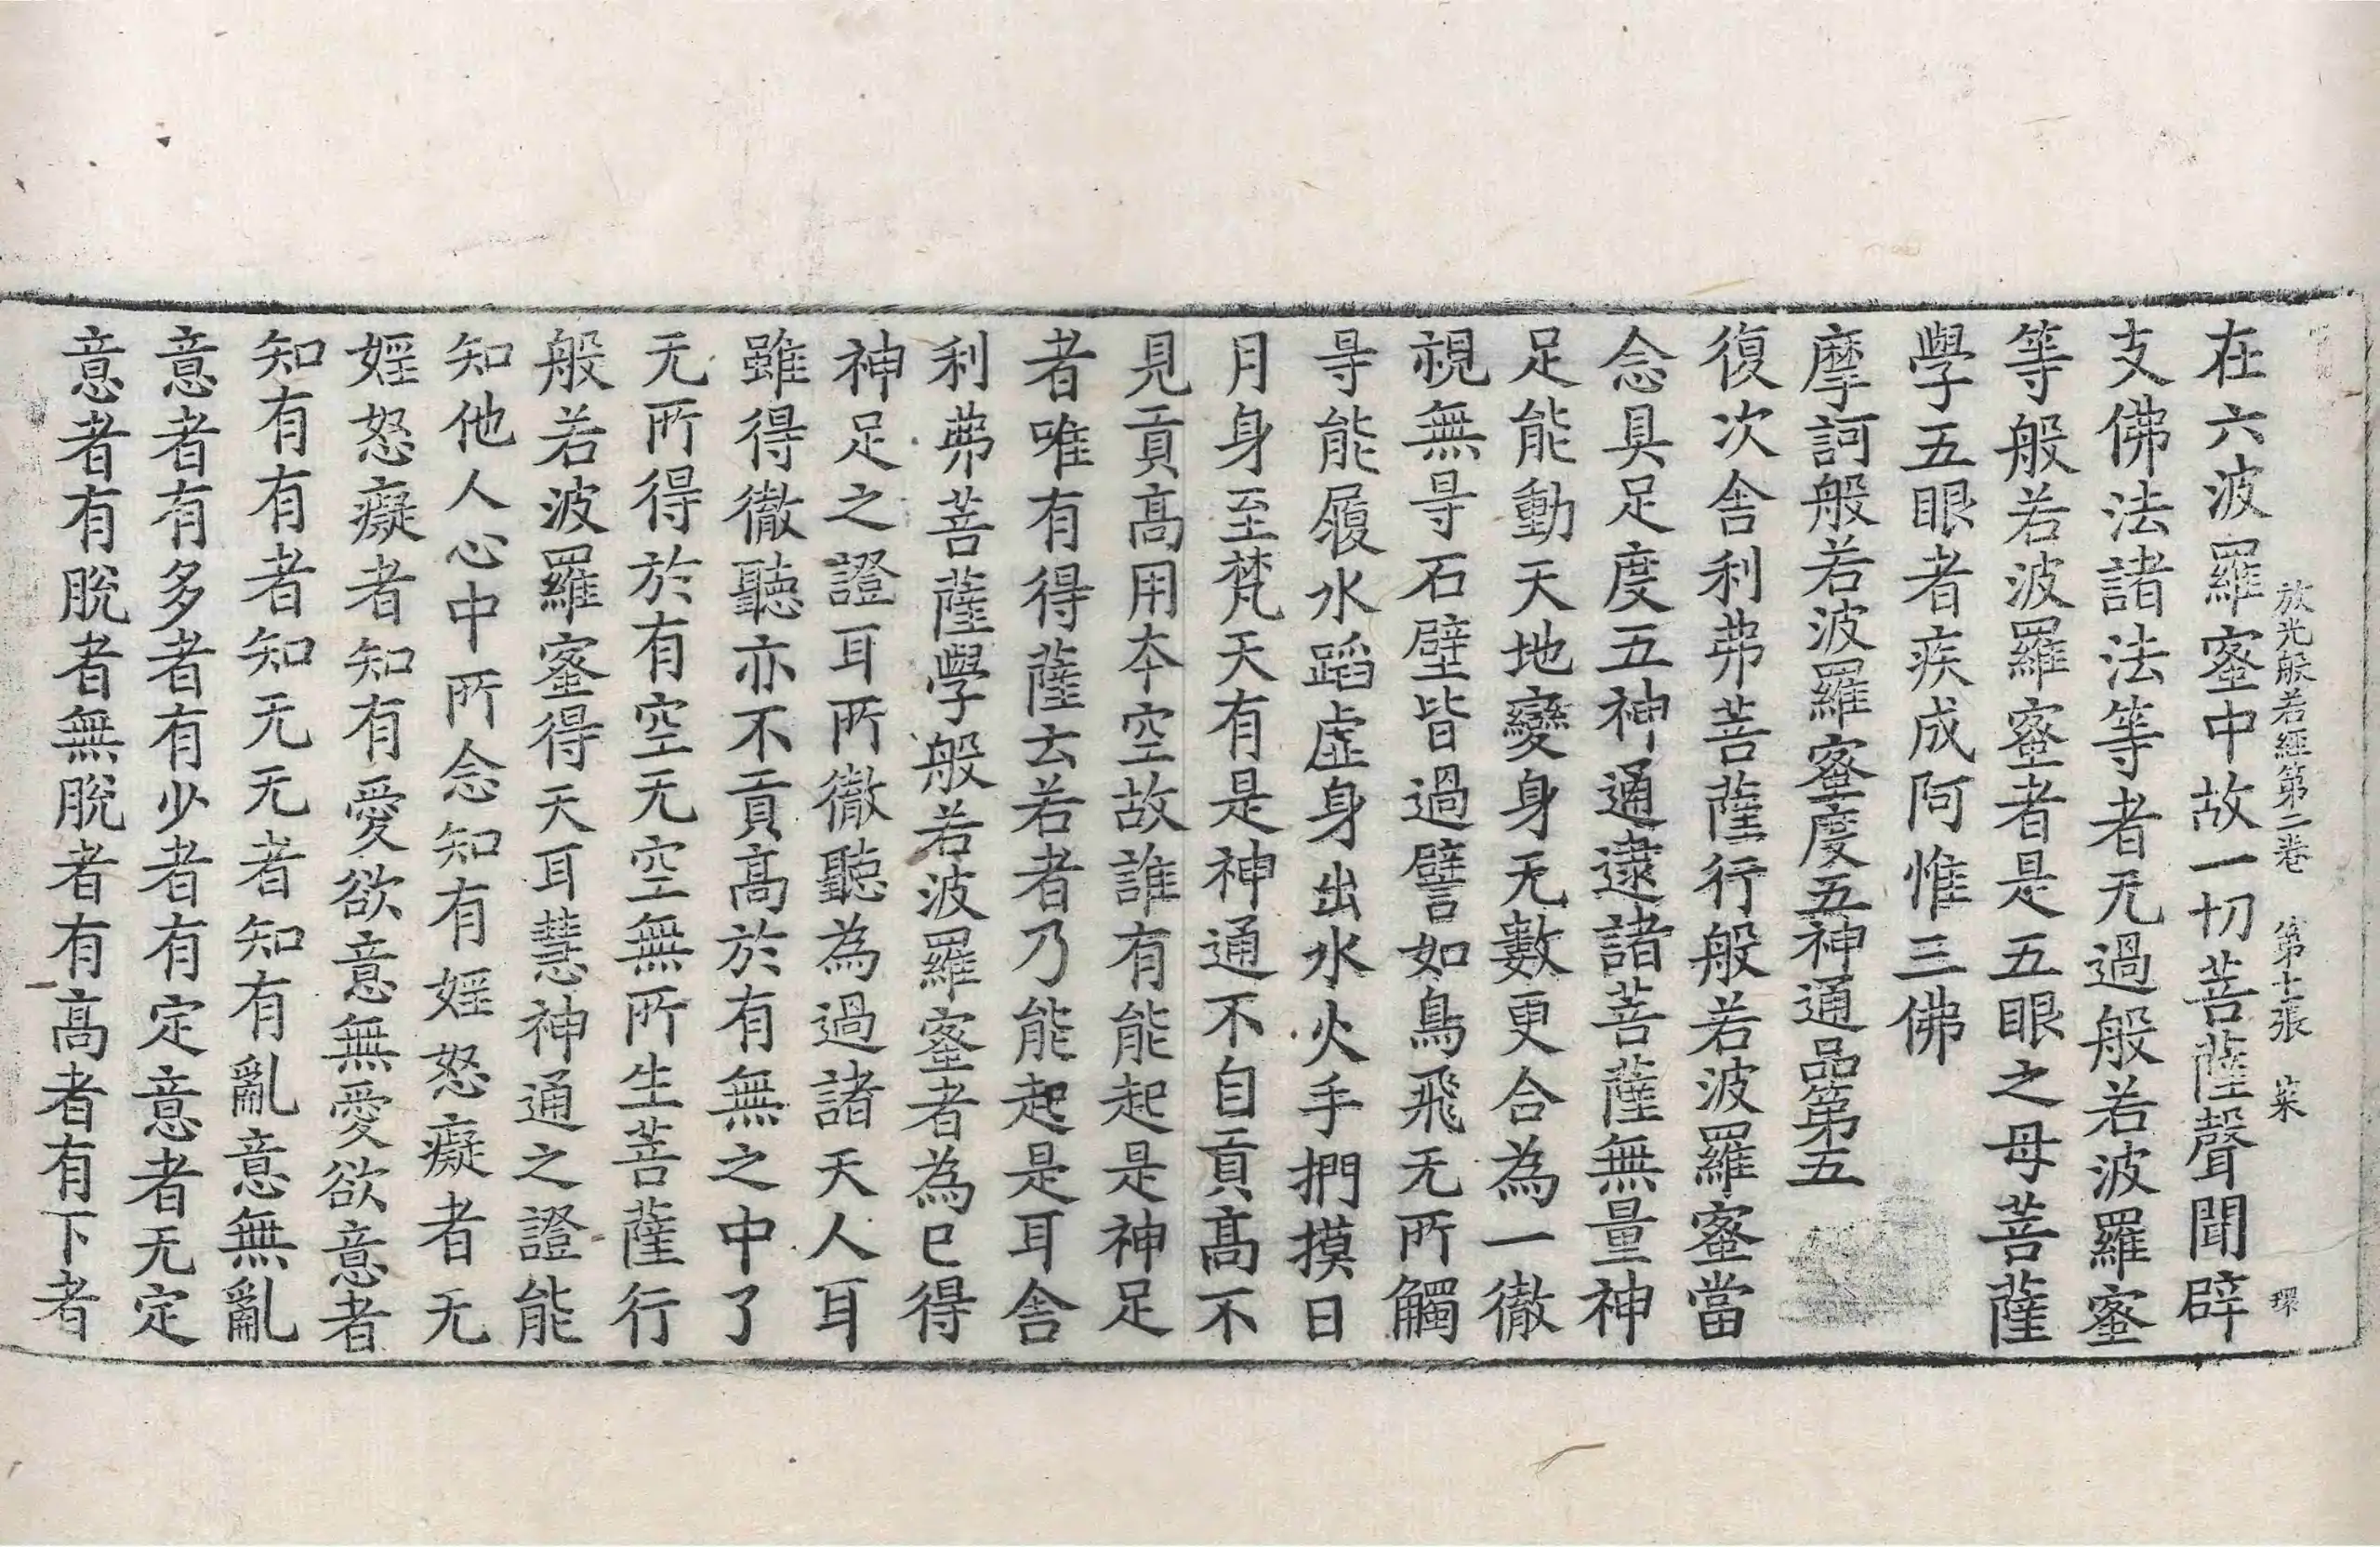 放光般若經第二卷 第十張 菜 環
在六波羅蜜中故一切菩薩聲聞辟
支佛法諸法等者无過般若波羅蜜
等般若波羅蜜者是五眼之母菩薩
學五眼者疾成阿惟三佛
摩訶般若波羅蜜度五神通品第五
復次舍利弗菩薩行般若波羅蜜當
念具足度五神通逮諸菩薩無量神
足能動天地變身无數更合為一徹
視無㝵石壁皆過譬如鳥飛无所觸
㝵能履水蹈虛身出水火手捫摸日
月身至梵天有是神通不自貢高不
見貢高用夲空故誰有能起是神足
者唯有得薩云若者乃能起是耳舍
利弗菩薩學般若波羅蜜者為已得
神足之證耳所徹聽為過諸天人耳
雖得徹聽亦不貢高於有無之中了
无所得於有空无空無所生菩薩行
般若波羅蜜得天耳慧神通之證能
知他人心中所念知有婬怒癡者无
婬怒癡者知有愛欲意無愛欲意者
知有有者知无无者知有亂意無亂
意者有多者有少者有定意者无定
意者有脫者無脫者有高者有下者